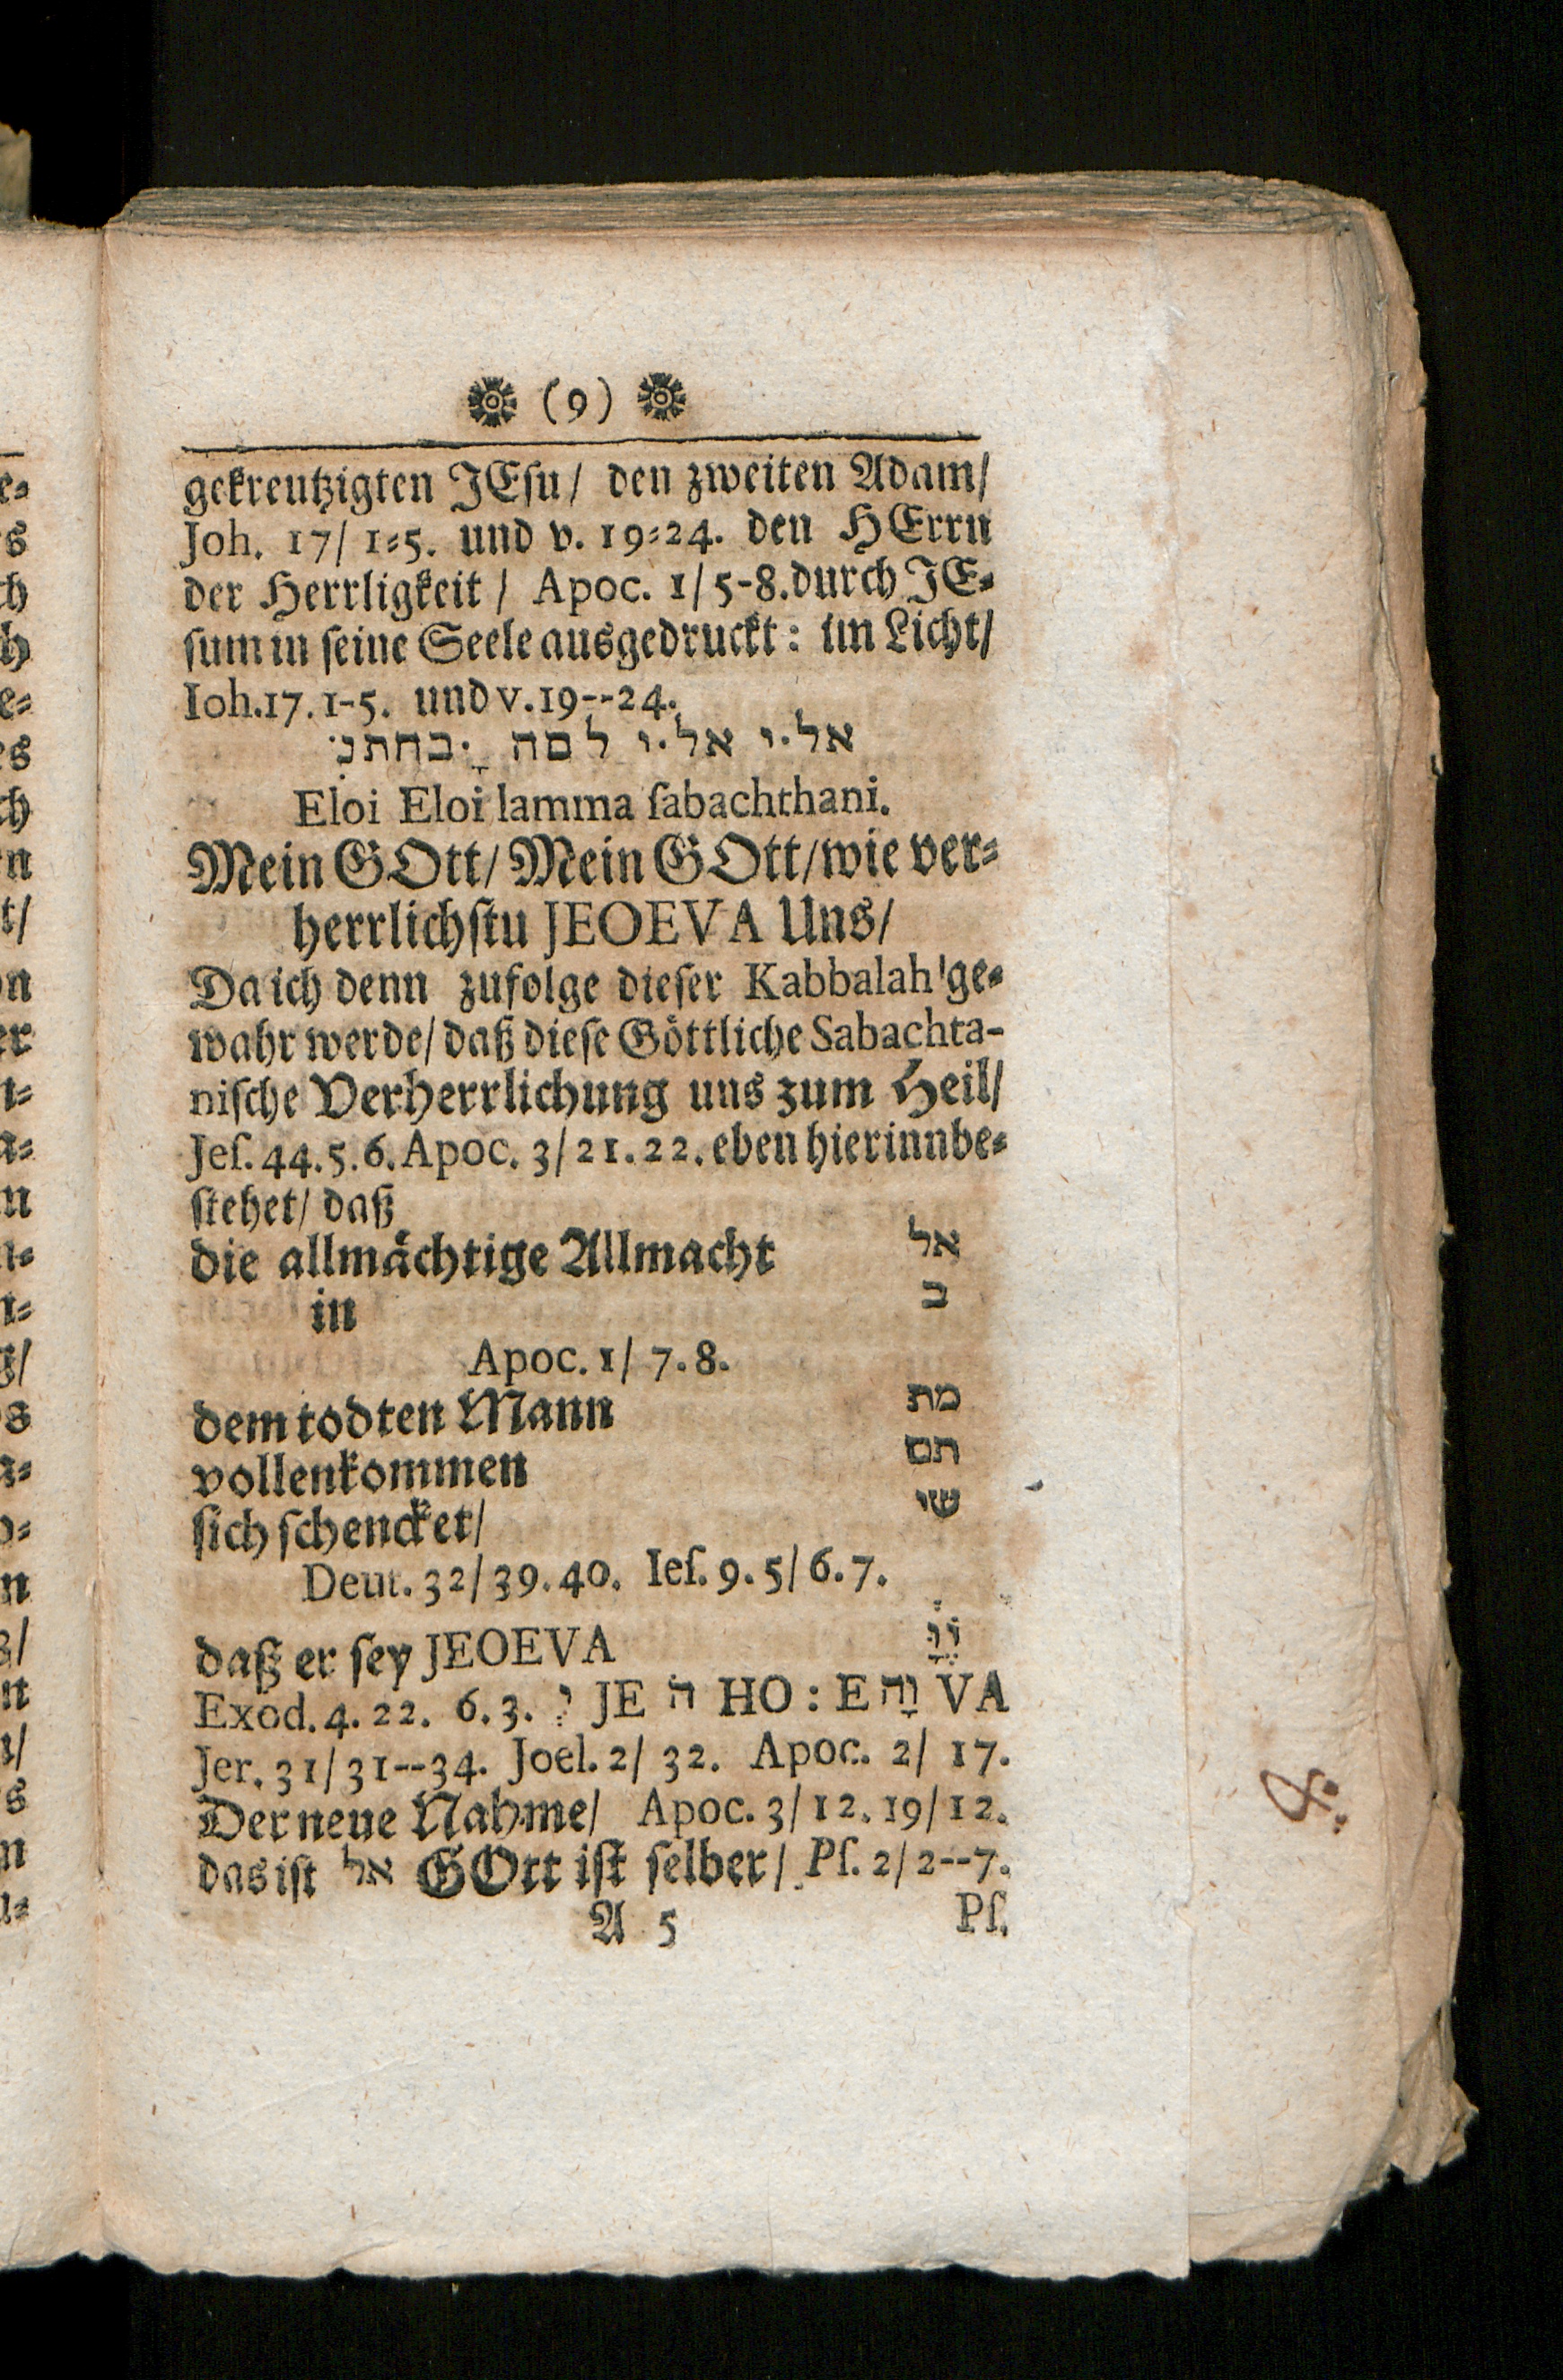 (9)
gekreutzigten JEſu/ den zweiten Adam/
Joh. 17/ 1⸗5. und v. 19⸗24. den HErrn
der Herrligkeit / Apoc. 1/ 5-8. durch JE⸗
ſum in ſeine Seele ausgedruckt: im Licht/
Ioh. 17. 1-5. und v. 19--24.
אל.י אל.י למה
Eloi Eloi lamma ſabachthani.
Mein GOtt/ Mein GOtt/ wie ver⸗
herrlichſtu JEOEVA Uns/
Da ich denn zufolge dieſer Kabbalah ge⸗
wahr werde/ daß dieſe Göttliche Sabachta-
niſche Verherrlichung uns zum Heil/
Jeſ. 44. 5. 6. Apoc. 3/ 21. 22. eben hierinn be⸗
ſtehet/ daß
die allmächtige Allmacht אל
in ב
Apoc. 1/ 7. 8.
dem todten Mann מת
vollenkommen תם
ſich ſchencket/ שי
Deut. 32/ 39. 40. Ieſ. 9. 5/ 6. 7.
daß er ſey JEOEVA
Exod. 4. 22. 6. 3. י JE ה HO : E וה VA
Jer. 31/ 31--34. Joel. 2/ 32. Apoc. 2/ 17.
Der neue Nahme/ Apoc. 3/ 12. 19/ 12.
das iſt אל GOtt iſt ſelber/ Pſ. 2/ 2--7.
A 5 Pſ.